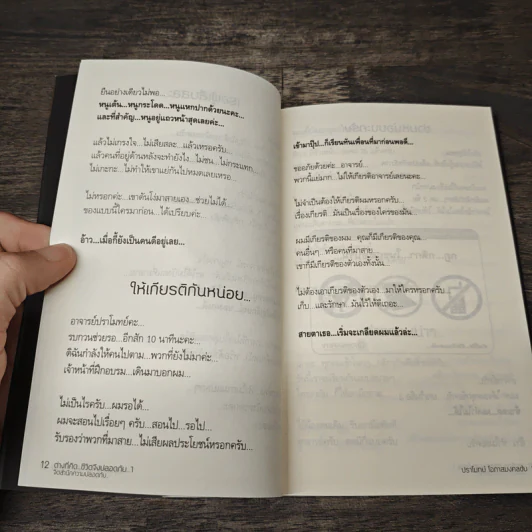 ยืนอย่างเดียวไม่พอ...
หนูเต้น...หนูกระโดด...หนูแหกปากด้วยนะคะ...
และที่สำคัญ...หนูอยู่แถวหน้าสุดเลยค่ะ...
แล้วไม่เกรงใจ...ไม่เสียสละ...แล้วเหรอครับ...
แล้วคนที่อยู่ด้านหลังจะทำยังไง...ไม่ชน...ไม่กระแทก
ไม่เกะกะ...ไม่ทำให้เขาแย่กันไปหมดเลยเหรอ...
ไม่หรอกค่ะ...เขาดันโง่มาสายเอง...ช่วยไม่ได้
ของแบบนี้ใครมาก่อน...ได้เปรียบค่ะ...
อ้าว...เมื่อกี้ยังเป็นคนดีอยู่เลย...
ให้เกียรติกันหน่อย...
อาจารย์ปราโมทย์คะ...
รบกวนช่วยรอ...อีกสัก 10 นาทีนะคะ...
ดิฉันกำลังให้คนไปตาม...พวกที่ยังไม่มาค่ะ...
เจ้าหน้าที่ฝึกอบรม...เดินมาบอกผม...
ไม่เป็นไรครับ...ผมรอได้...
ผมจะสอนไปเรื่อยๆ ครับ...สอนไป...รอไป...
รับรองว่าพวกที่มาสาย...ไม่เสียผลประโยชน์หรอกครับ...
12 ต่างที่คิด..ชีวิตจึงปลอดภัย..1
จิตสำนึกความปลอดภัย
เข้ามาปุ๊ป...ก็เรียนทันเพื่อนที่มาก่อนพอดี...
ขออภัยด้วยค่ะ...อาจารย์...
พวกนี้แย่มาก...ไม่ให้เกียรติอาจารย์เลยนะคะ...
ไม่จำเป็นต้องให้เกียรติผมหรอกครับ...
เรื่องเกียรติ...มันเป็นเรื่องของใครของมัน...
ผมมีเกียรติของผม...คุณก็มีเกียรติของคุณ...
คนอื่นๆ...หรือคนที่มาสาย...
เขาก็มีเกียรติของตัวเองทั้งนั้น...
ไม่ต้องเอาเกียรติของตัวเอง...มาให้ใครหรอกครับ
เก็บ...และรักษา...มันไว้ให้ดีเถอะ...
สายตาเธอ...เริ่มจะเกลียดผมแล้วล่ะ...
ปราโมทย์ โอภาสมงคลชัย